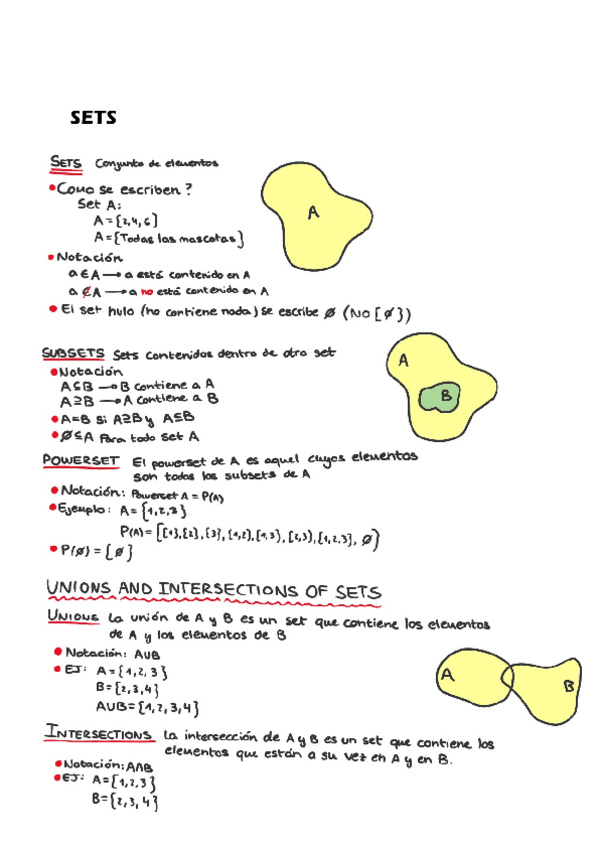 SETS
SETS Conjunto de elementos
• Como se escriben?
Set A:
A = {2,4,6}
A = {Todas las mascotas}
A
• Notación
a ∈ A → a está contenido en A
a ∉ A → a no está contenido en A
• El set nulo (no contiene nada) se escribe ∅ (NO {∅})
SUBSETS Sets contenidos dentro de otro set
• Notación
A ⊆ B → B contiene a A
A ⊇ B → A contiene a B
• A=B si A⊇B y A⊆B
• ∅⊆A Para todo set A
A
B
POWERSET El powerset de A es aquel cuyos elementos
son todos los subsets de A
• Notación: Powerset A = P(A)
• Ejemplo: A = {1,2,3}
P(A) = {{1},{2},{3},{1,2},{1,3},{2,3},{1,2,3}, ∅}
• P(∅) = {∅}
UNIONS AND INTERSECTIONS OF SETS
UNIONS La unión de A y B es un set que contiene los elementos
de A y los elementos de B
• Notación: A∪B
• EJ: A = {1,2,3}
B = {2,3,4}
A∪B = {1,2,3,4}
A
B
INTERSECTIONS La intersección de A y B es un set que contiene los
elementos que están a su vez en A y en B.
• Notación: A∩B
• EJ: A = {1,2,3}
B = {2,3,4}